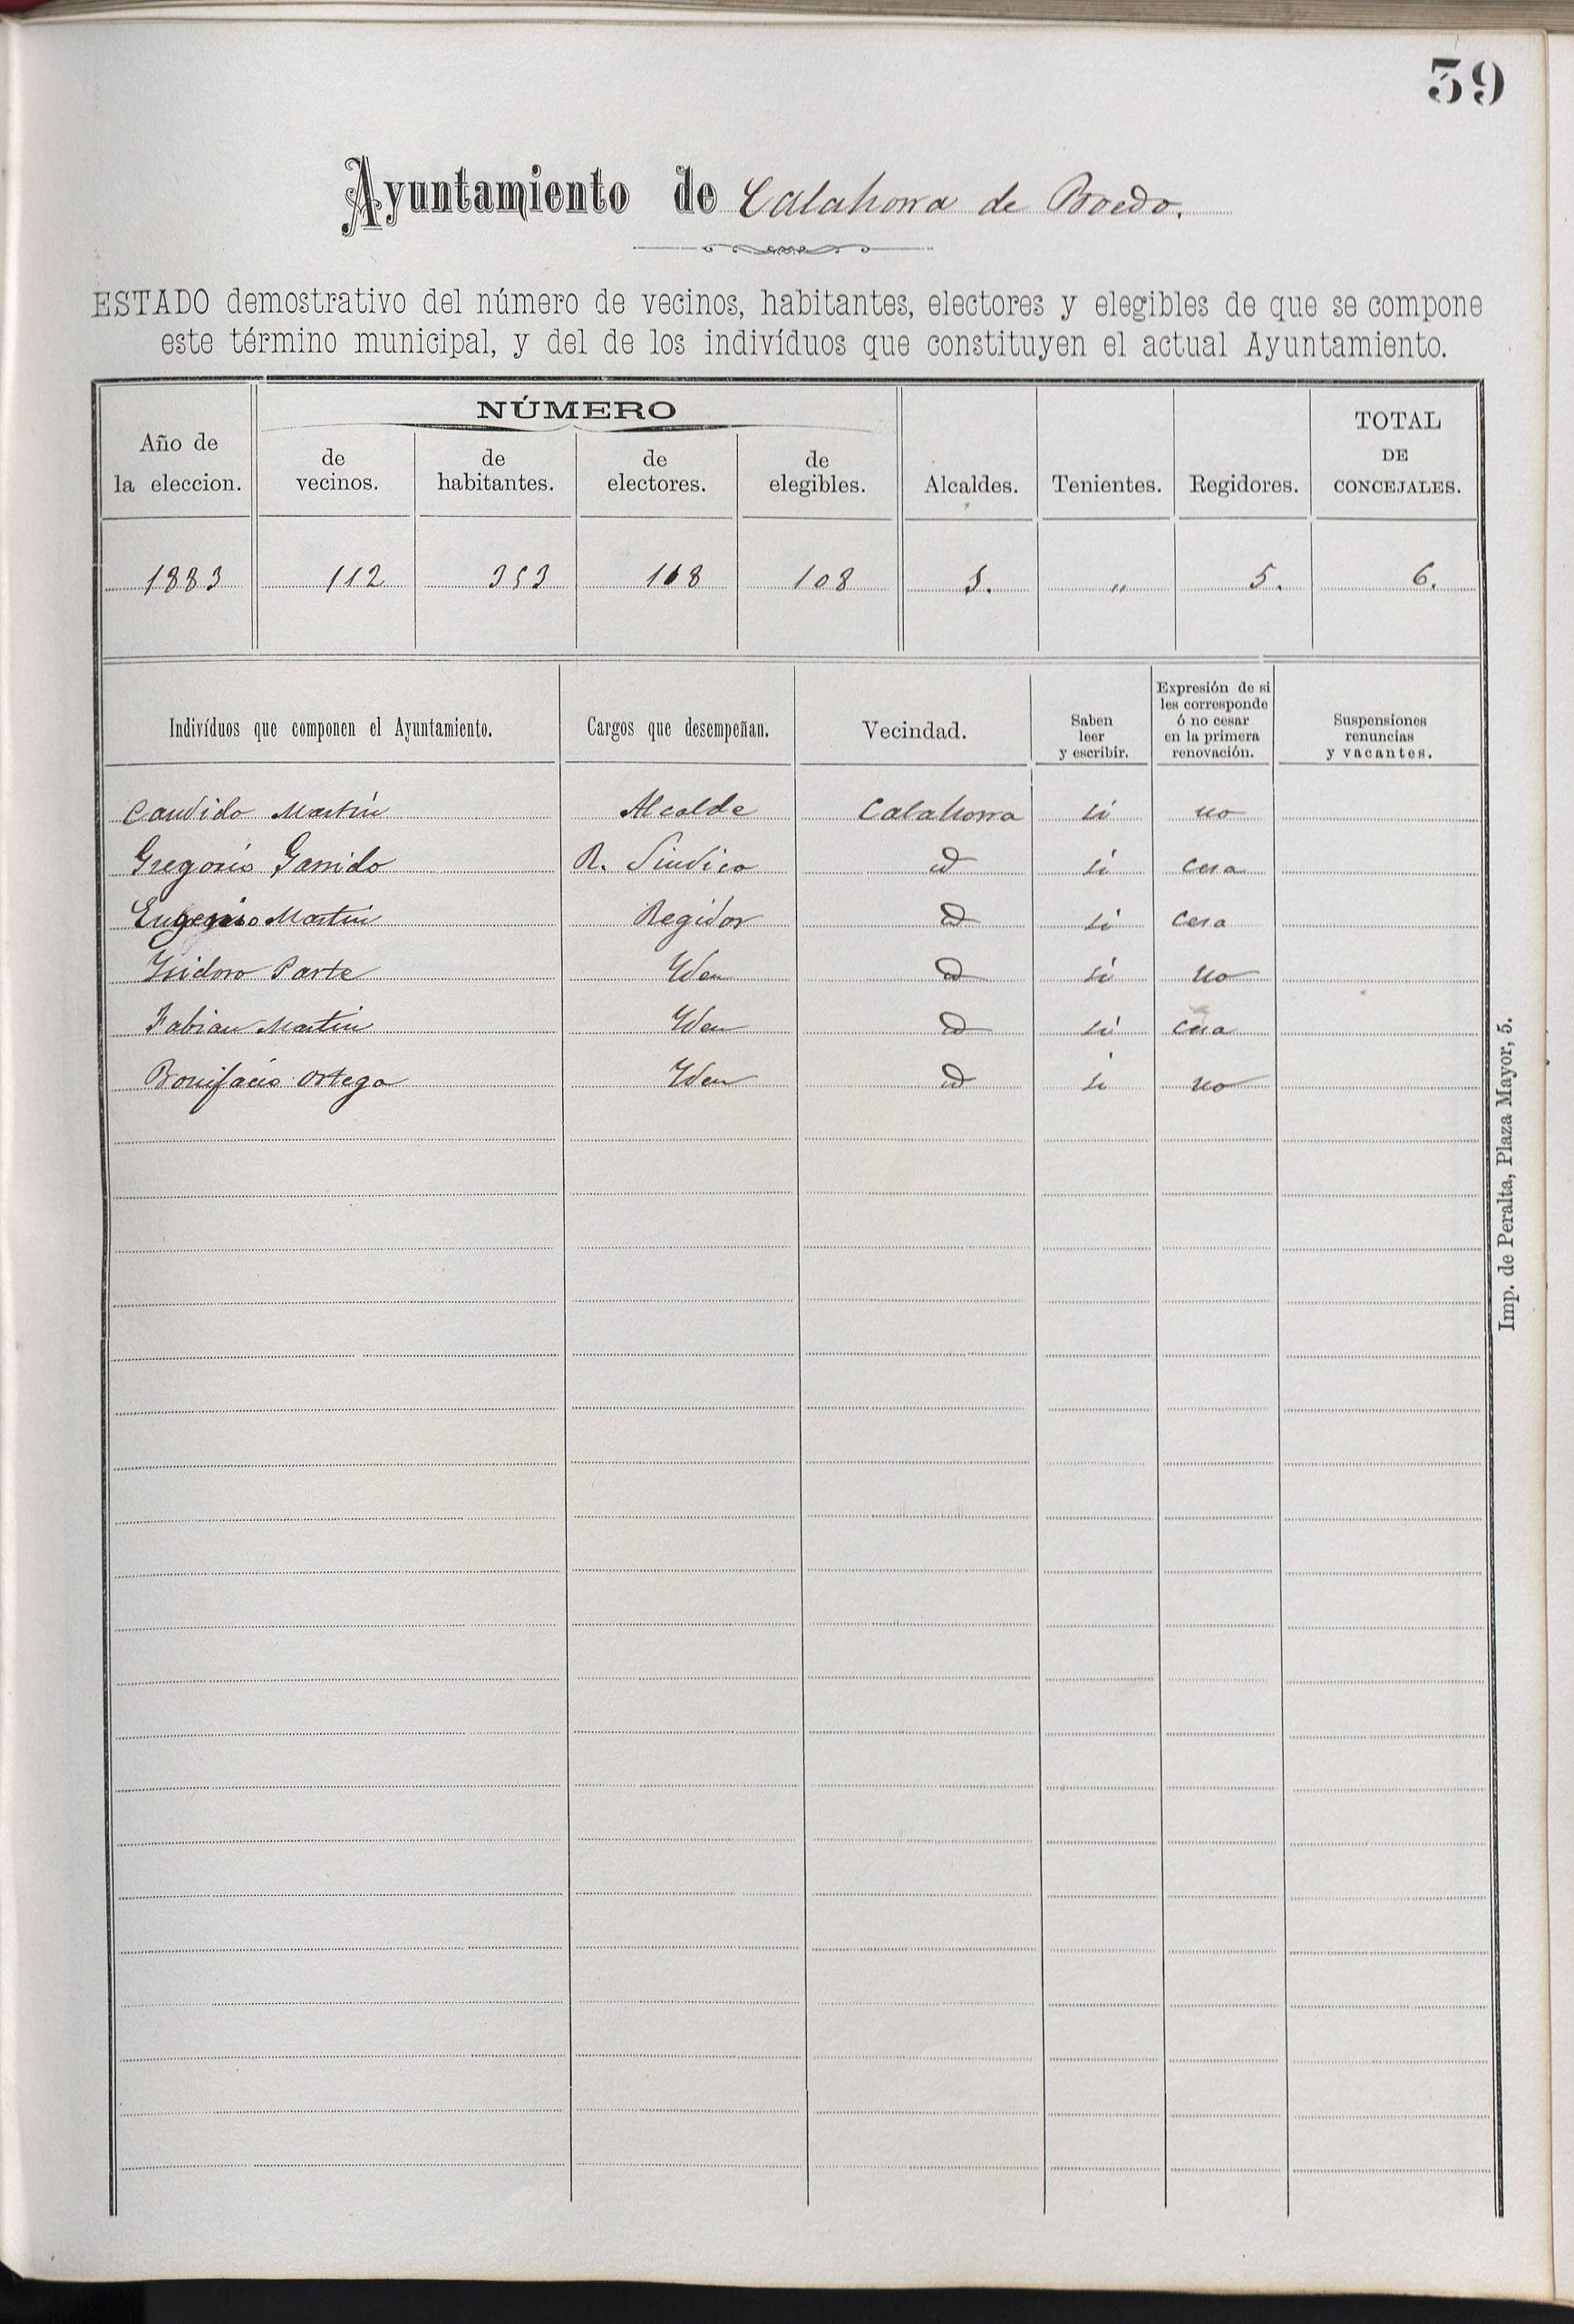 39
Ayuntamiento de Calahorra de Boedo.
ESTADO demostrativo del número de vecinos, habitantes, electores y elegibles de que se compone
este término municipal, y del de los indivíduos que constituyen el actual Ayuntamiento.
Año de la eleccion. NÚMERO de vecinos. de habitantes. de electores. de elegibles. Alcaldes. Tenientes. Regidores. TOTAL DE CONCEJALES.
1883 112 353 108 108 1. " 5. 6.
Indivíduos que componen el Ayuntamiento. Cargos que desempeñan. Vecindad. Saben leer y escribir. Expresión de si les corresponde ó no cesar en la primera renovación. Suspensiones renuncias y vacantes.
Candido Martín Alcalde Calahorra si no
Gregorio Garrido R. Sindico id si cesa
Eugenio Martin Regidor id si cesa
Ysidoro Parte Yden id si no
Fabian Martin Yden id si cesa
Bonifacio Ortega Yden id si no
Imp. de Peralta, Plaza Mayor, 5.